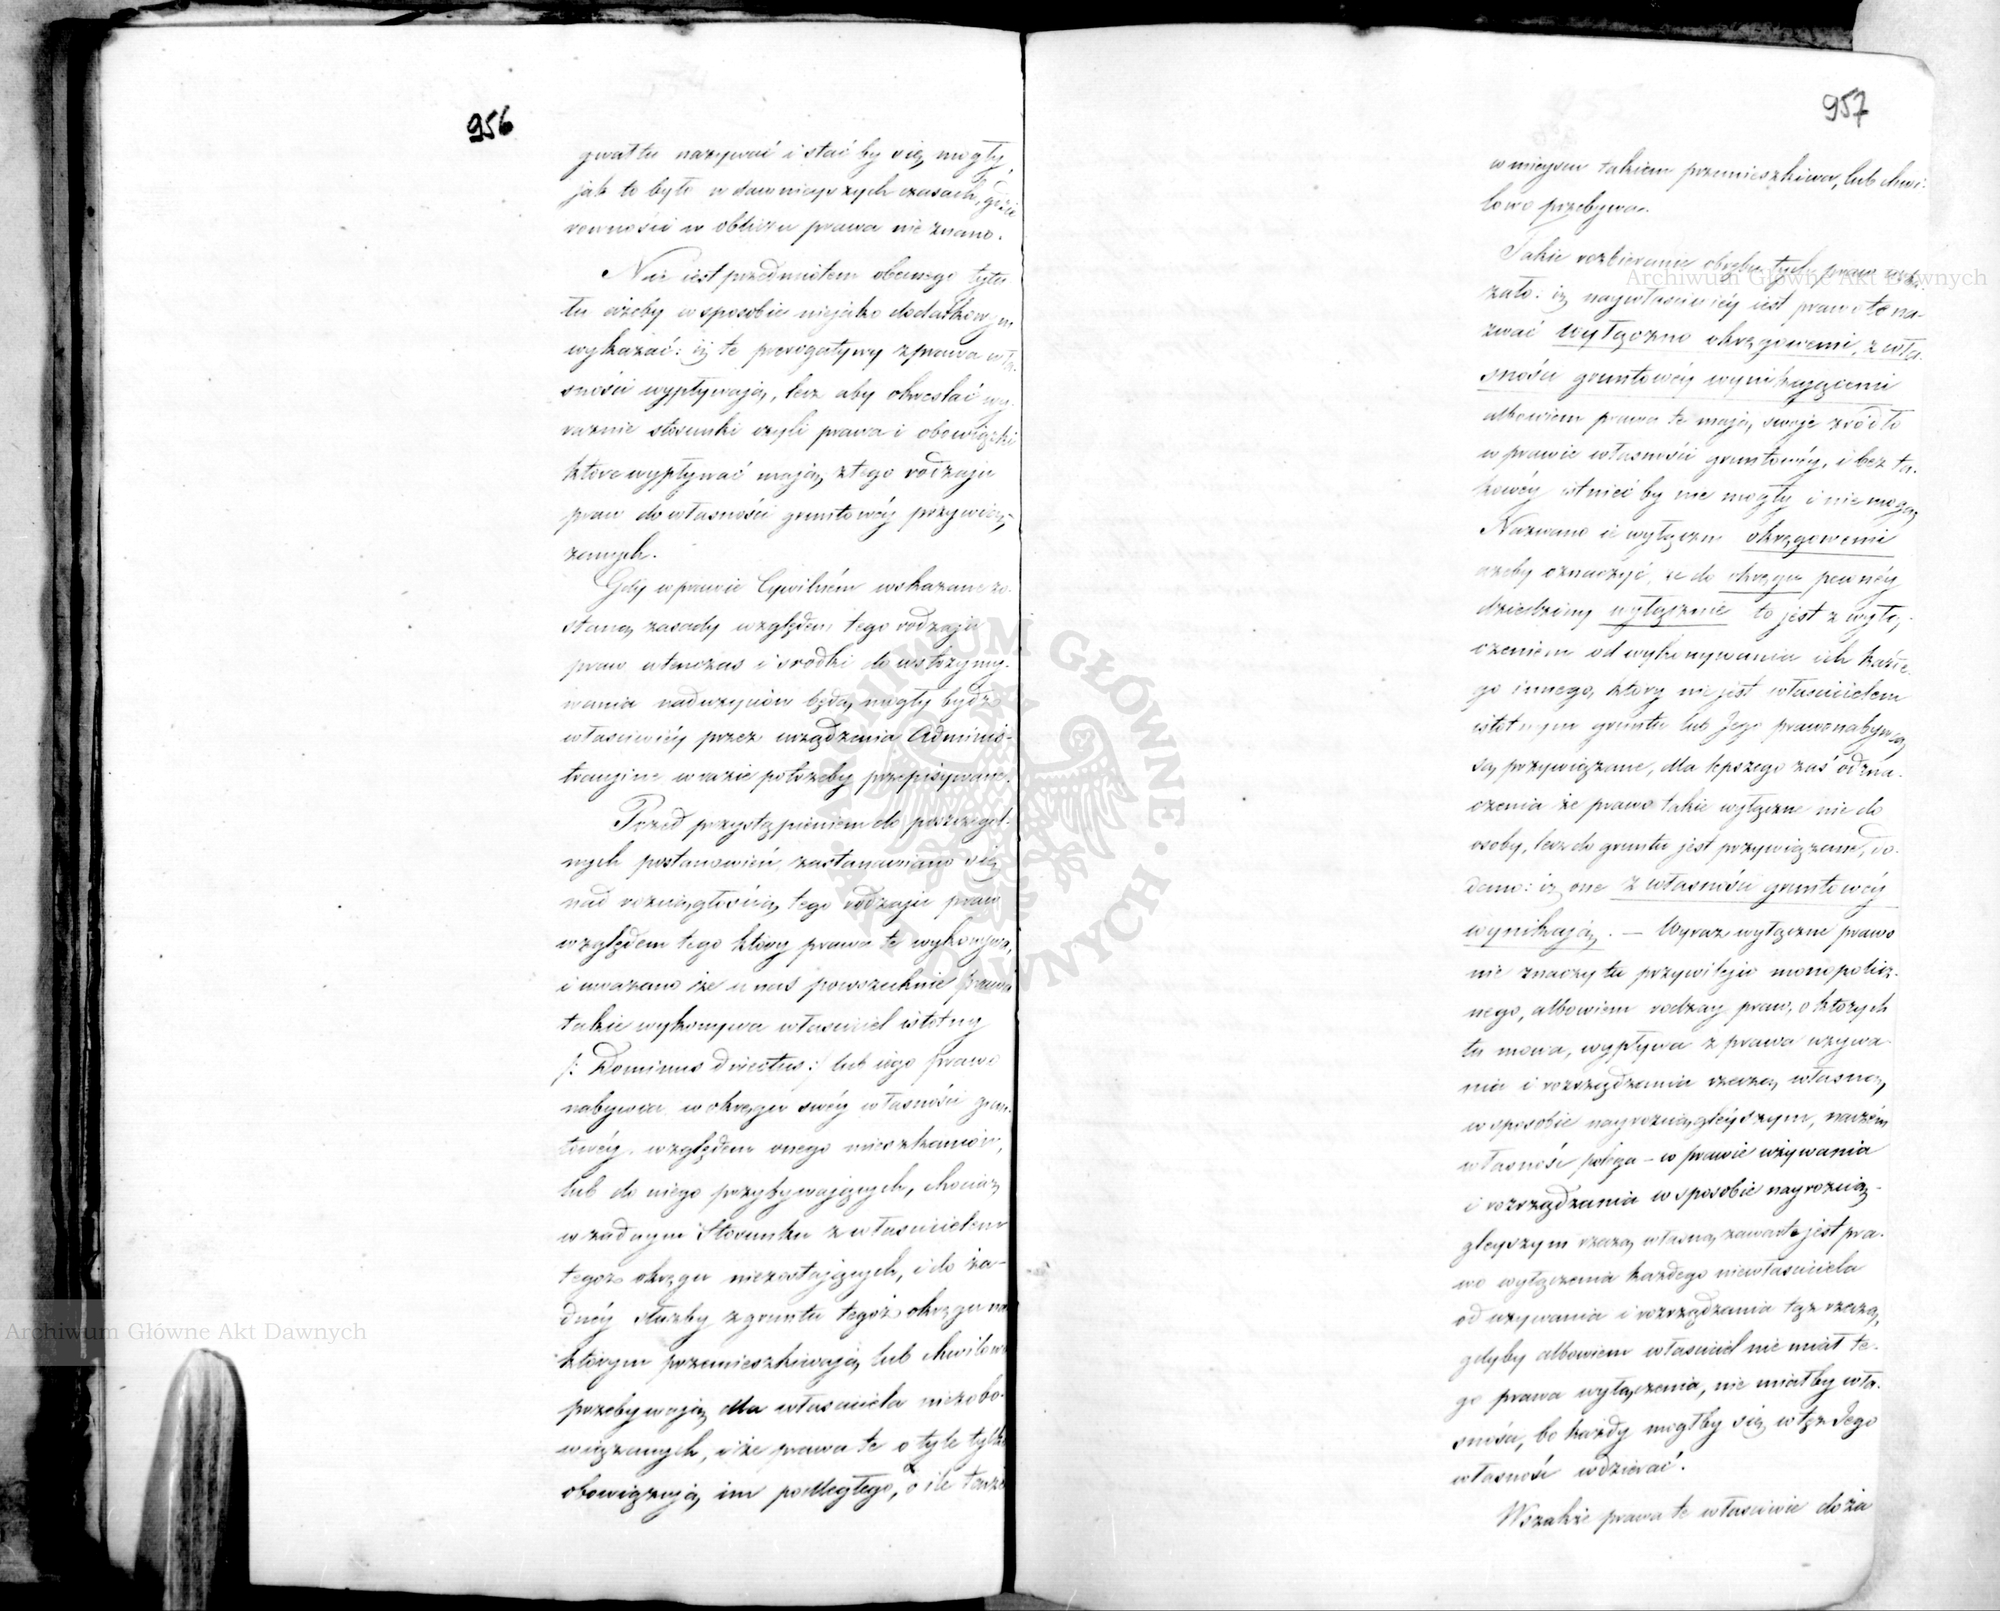 956
gwałtu nazywać i stać by się mogły,
jak to było w dawnieyszych czasach, gdzie
rowności w obliczu prawa nie znano.
Nie iest przedmiotem obecnego tytu-
łu ażeby w sposobie niejako dodatkowym
wykazać: iż te prerogatywy z prawa wła-
sności wypływają, lecz aby okreslać wy-
raznie stosunki czyli prawa i obowiązki
ktore wypływać mają z tego rodzaju
praw do własności gruntowéy przywią-
zanych.
Gdy w prawie Cywilném wskazane zo-
staną zasady względem tego rodzaju
praw wtenczas i srodki do wstrzymy-
wania nadużyciow będą mogły bydź
własciwiéy przez urządzenia Admini-
tracyine w razie potrzeby przepisywane.
Przed przystąpieniem do poszczegol-
nych postanowień zastanawiano się
nad rozciągłością tego rodzaju praw
względem tego który prawa te wykonywa,
i uważano że u nas powszechnie prawa
takie wykonywa własciciel istotny
/: Dominus directus :/ lub iego prawo
nabywca w okręgu swéy własności grun-
towéy, względem onego mieszkańców,
lub do niego przybywających, chociaż
w żadnym stosunku z własicielem
tegoż okręgu niezostających, i do ża-
dnéy służby z gruntu tegoż okręgu na
którym przemieszkiwają lub chwilowo
przebywają dla własciciela niezobo-
wiązanych, i że prawa te o tyle tylko
obowiązują im podległego, o ile tenże
957
w mieyscu takiem przemieszkiwa, lub chwi-
lowo przebywa.
Takie rozbieranie obrębu tych praw wska-
zało: iż naywłasciwiéy iest prawo to na-
zwać wyłączno okręgowemi, z wła-
sności gruntowéy wynikaiącemi
albowiem prawa te mają swoje zródło
w prawie własności gruntowéy, i bez ta-
kowéy istnieć by nie mogły i nie mogą
Nazwano ie wyłączno okręgowemi
ażeby oznaczyć, że do okręgu pewnéy
dziedziny wyłącznie to jest z wyłą-
czeniem od wykonywania ich każde-
go innego, który nie jest własicielem
istotnym gruntu lub Jego prawonabywcą,
są przywiązane, dla lepszego zaś ozna-
czenia że prawo takie wyłączne nie do
osoby, lecz do gruntu jest przywiązane, do-
dano: iż one z własności gruntowéy
wynikają. — Wyraz wyłączne prawo
nie znaczy tu przywileju monopolicz-
nego, albowiem rodzay praw, o których
tu mowa, wypływa z prawa używa-
nia i rozrządzania rzeczą własną,
w sposobie nayrozciągleyszym, na czém
własność polega – w prawie używania
i rozrządzania w sposobie nayrozcią-
gleyszym rzeczą własną zawarte jest pra-
wo wyłączenia każdego niewłasciciela
od używania i rozrządzania tąż rzeczą,
gdyby albowiem własciciel nie miał te-
go prawa wyłączenia, nie miałby wła-
sności, bo każdy mogłby się w tęż Jego
własność wdzierać.
Wszakże prawa te własciwie do za
Archiwum Główne Akt Dawnych
Archiwum Główne Akt Dawnych
ARCHIWUM GŁÓWNE · AKT DAWNYCH ·